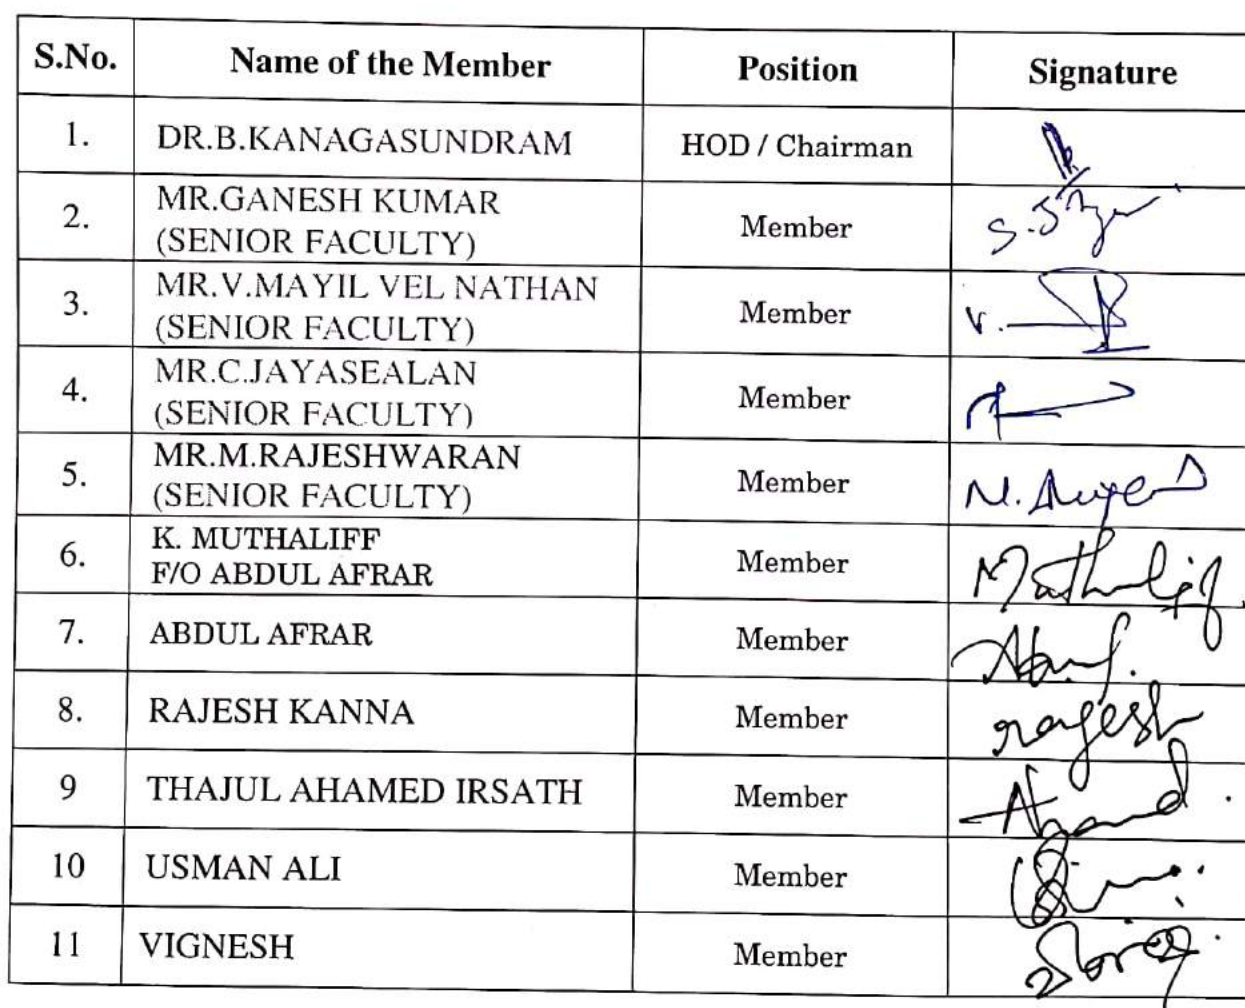 S.No. Name of the Member Position Signature
1. DR.B.KANAGASUNDRAM HOD / Chairman
2. MR.GANESH KUMAR
(SENIOR FACULTY) Member
3. MR.V.MAYIL VEL NATHAN
(SENIOR FACULTY) Member
4. MR.C.JAYASEALAN
(SENIOR FACULTY) Member
5. MR.M.RAJESHWARAN
(SENIOR FACULTY) Member
6. K. MUTHALIFF
F/O ABDUL AFRAR Member Muthalif
7. ABDUL AFRAR Member
8. RAJESH KANNA Member rajesh
9 THAJUL AHAMED IRSATH Member
10 USMAN ALI Member
11 VIGNESH Member